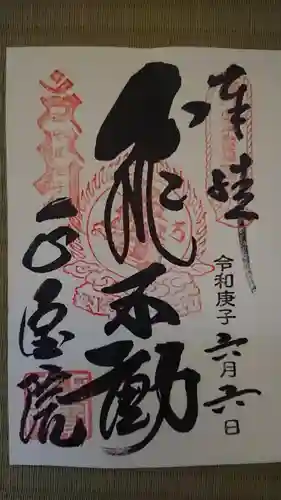 奉拝
令和庚子六月六日
飛不動
正宝院